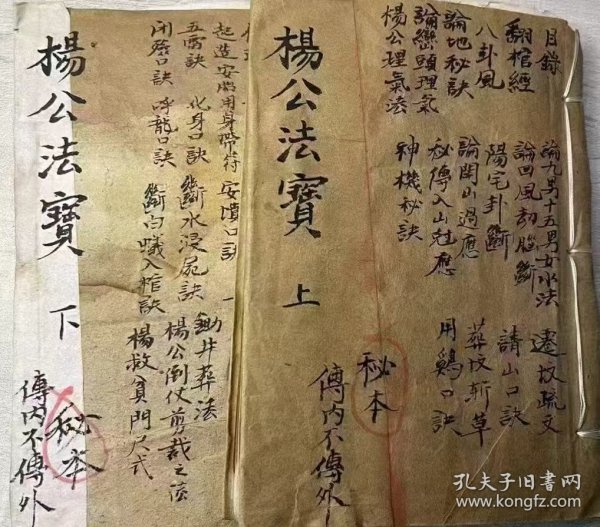 目錄
翻棺經
八卦風
論地秘訣
論巒頭理氣
楊公理氣法
論九星十五男女水法
論凹風劫腦斷
陽宅卦斷
論開山過應
秘傳入山尅應
神機秘訣
遷坟疏文
請山口訣
葬坟斬草
用鷄口訣
楊公法寶
上
秘本
傳內不傳外
起造安臨用身帶符
安墳口訣
五雷訣
化身口訣
斷水浸屍訣
閉殮口訣
呼龍口訣
斷白蟻入棺訣
金井葬法
楊公倒仗剪裁之法
楊救貧門尺式
楊公法寶
下
秘本
傳內不傳外
孔夫子旧书网
www.kongfz.com